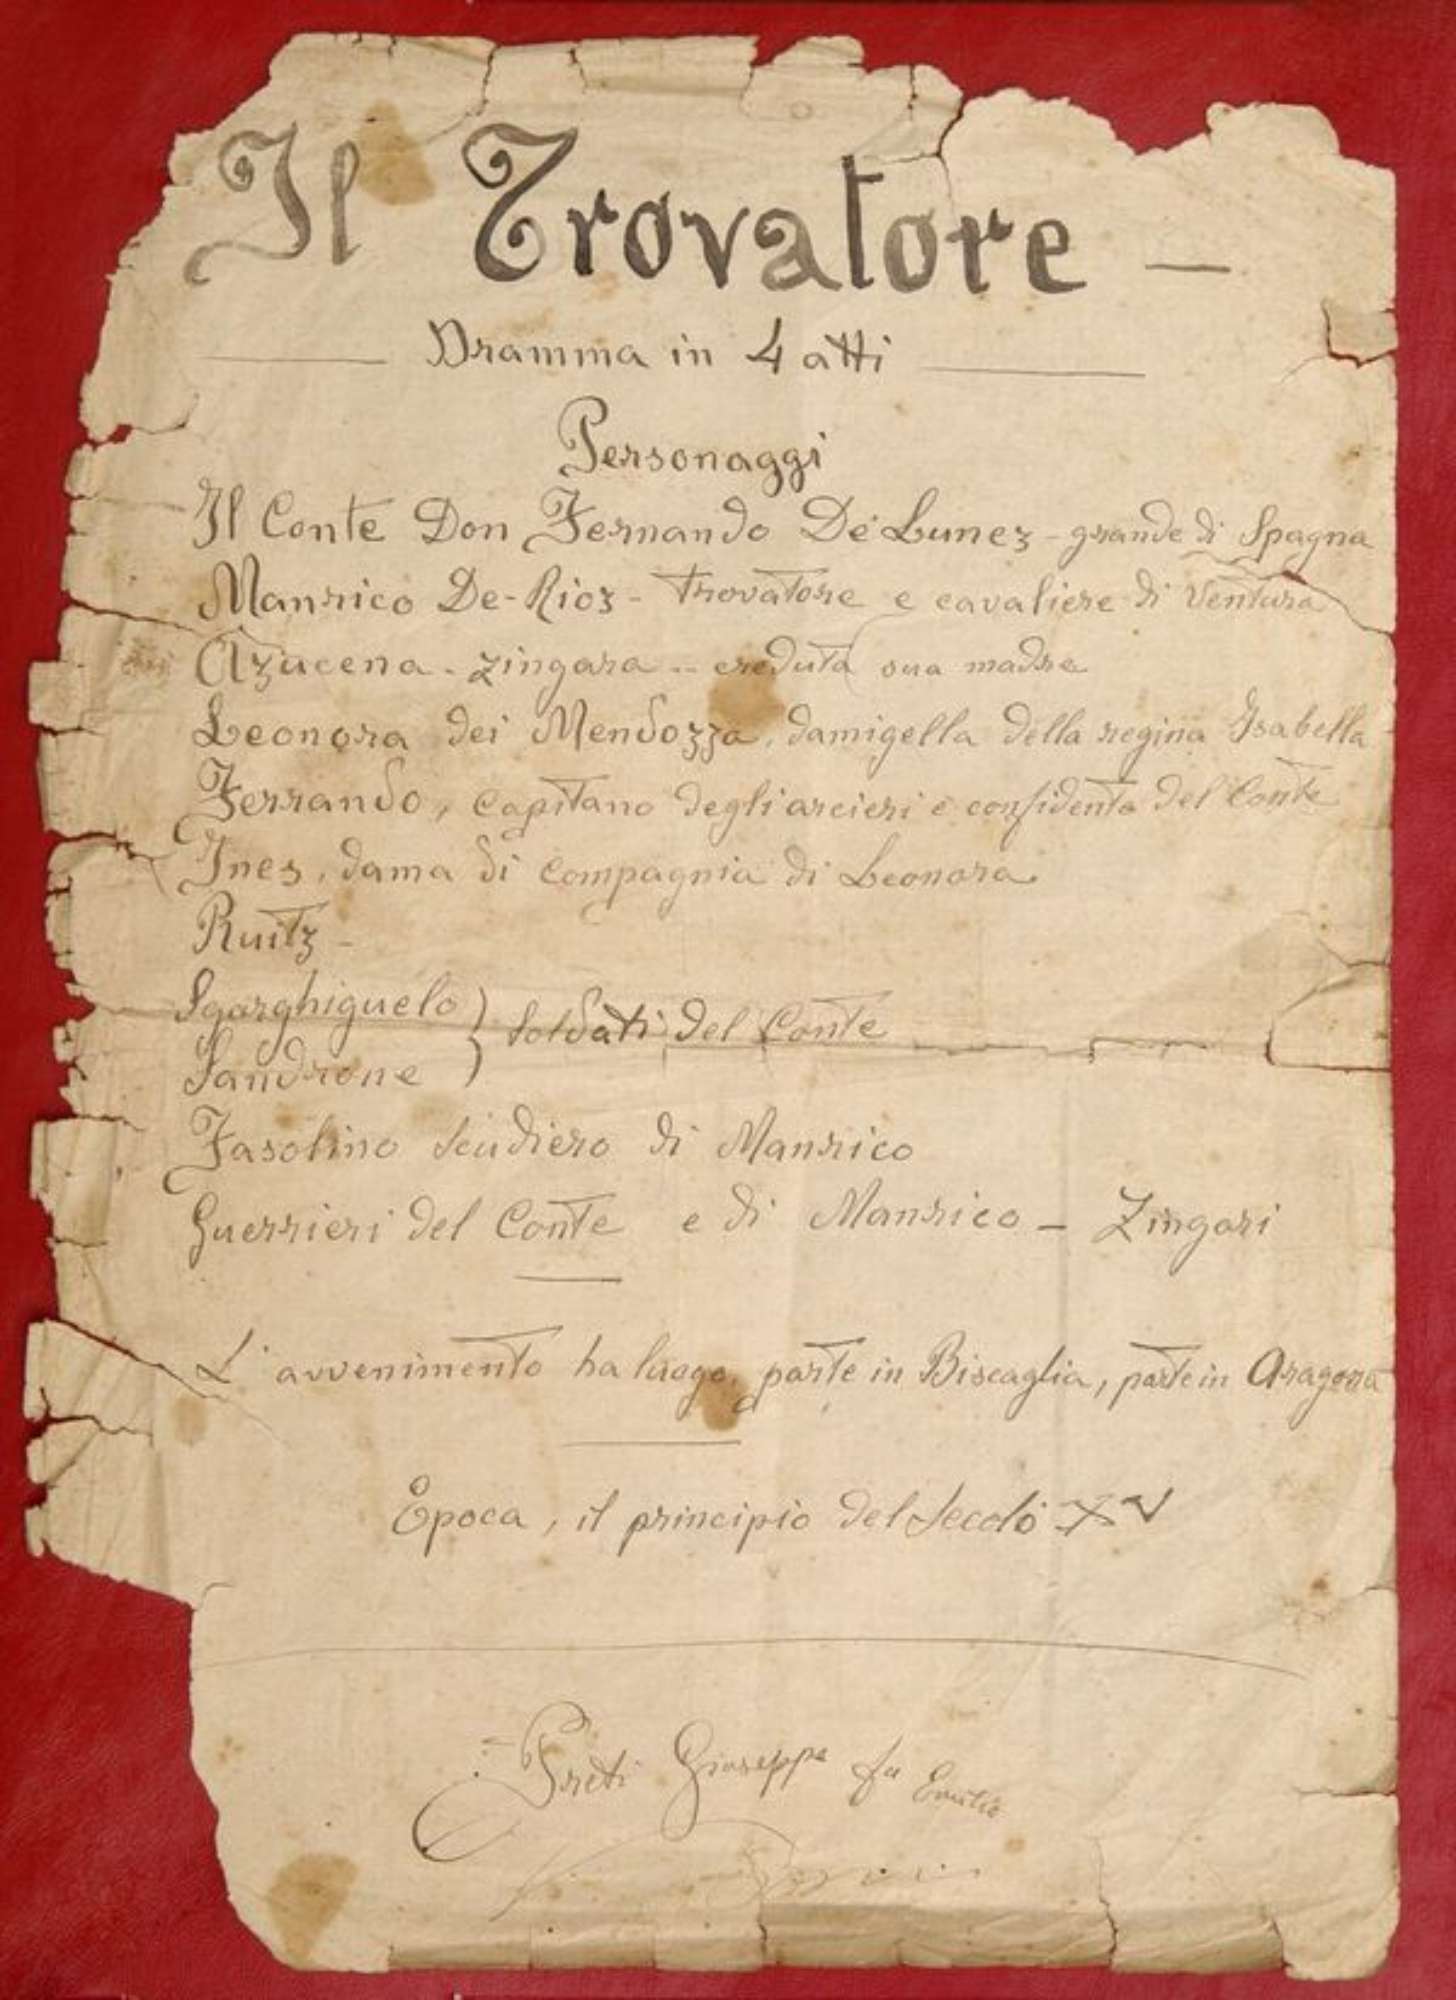 Il Trovatore —
Dramma in 4 atti
Personaggi
Il Conte Don Fernando De Lunez - grande di Spagna
Manrico De-Rioz - trovatore e cavaliere di ventura
Azucena - zingara - creduta sua madre
Leonora dei Mendozza, damigella della regina Isabella
Ferrando, capitano degli arcieri e confidente del Conte
Ines, dama di compagnia di Leonora
Ruitz -
Sgarghiguelo
} Soldati del Conte
Sandrone
Fasolino Scudiero di Manrico
Guerrieri del Conte e di Manrico - Zingari
L'avvenimento ha luogo, parte in Biscaglia, parte in Aragona
Epoca, il principio del Secolo XV
Preti Giuseppe fu Emilio